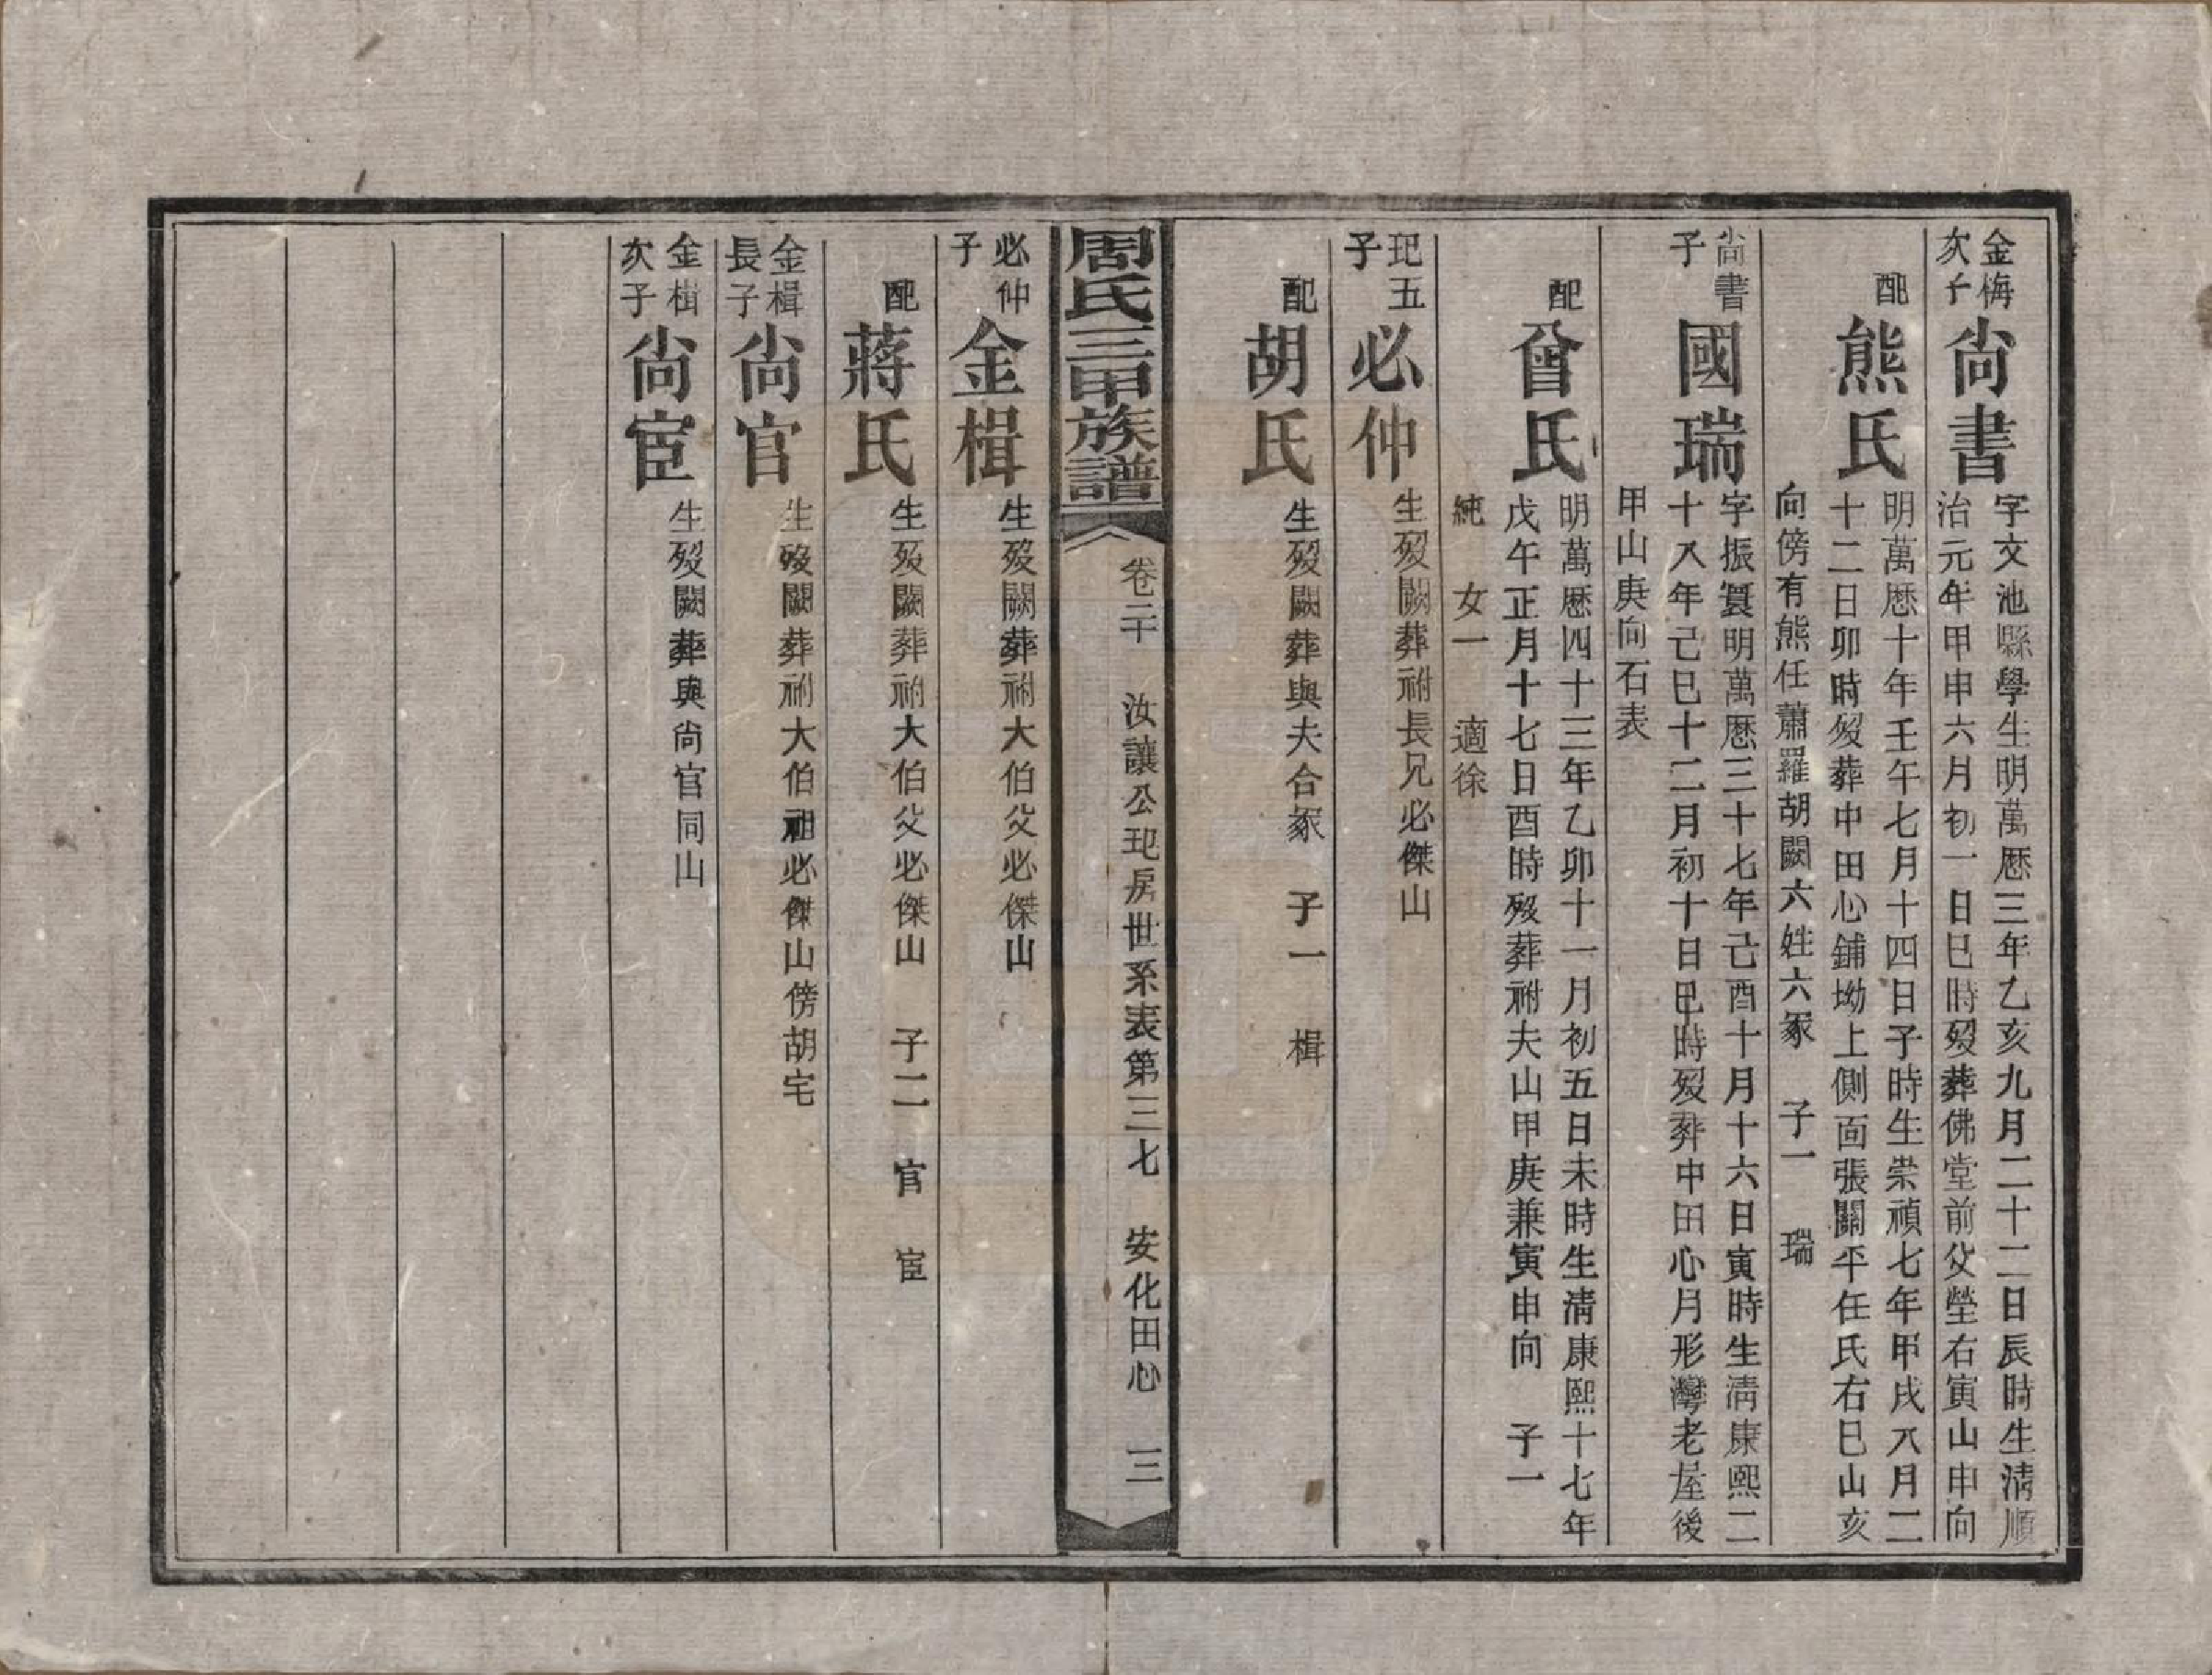 金梅
次子
尚書
字文池縣學生明萬厯三年乙亥九月二十二日辰時生淸順
治元年甲申六月初一日巳時歿葬佛堂前父塋右寅山申向
配
熊氏
明萬厯十年壬午七月十四日子時生崇禎七年甲戌八月二
十二日卯時歿葬中田心鋪坳上側面張關平任氏右巳山亥
向傍有熊任蕭羅胡闕六姓六冢 子一 瑞
尚書
子
國瑞
字振寰明萬厯三十七年己酉十月十六日寅時生淸康熙二
十八年己巳十二月初十日巳時歿葬中田心月形灣老屋後
甲山庚向石表
配
曾氏
明萬厯四十三年乙卯十一月初五日未時生淸康熙十七年
戊午正月十七日酉時歿葬祔夫山甲庚兼寅申向 子一
純 女一 適徐
玘五
子
必仲
生歿闕葬祔長兄必傑山
配
胡氏
生歿闕葬與夫合冢 子一 楫
周氏三甲族譜
卷二十 汝讓公玘房世系表第三七 安化田心 三
必仲
子
金楫
生歿闕葬祔大伯父必傑山
配
蔣氏
生歿闕葬祔大伯父必傑山 子二 官 宦
金楫
長子
尚官
生歿闕葬祔大伯祖必傑山傍胡宅
金楫
次子
尚宦
生歿闕葬與尚官同山